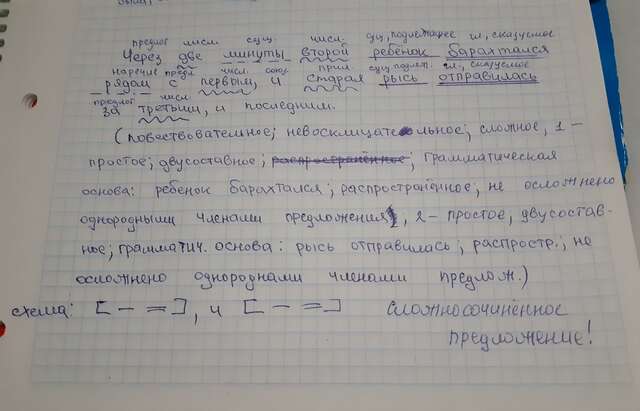 предлог числ. сущ. числ. сущ., подлежащее гл., сказуемое
Через две минуты второй ребёнок барахтался
наречие предл. числ. союз. прил. сущ., подл. гл., сказуемое
рядом с первым, и старая рысь отправилась
предлог числ.
за третьими, и последним.
(повествовательное; невосклицательное; сложное, 1 –
простое; двусоставное; распространённое; грамматическая
основа: ребёнок барахтался; распространённое, не осложнено
однородными членами предложения, 2 – простое, двусостав-
ное; грамматич. основа: рысь отправилась; распростр.; не
осложнено однороднами членами предлож.)
схема: [ – = ], и [ – = ] Сложносочинённое
предложение!